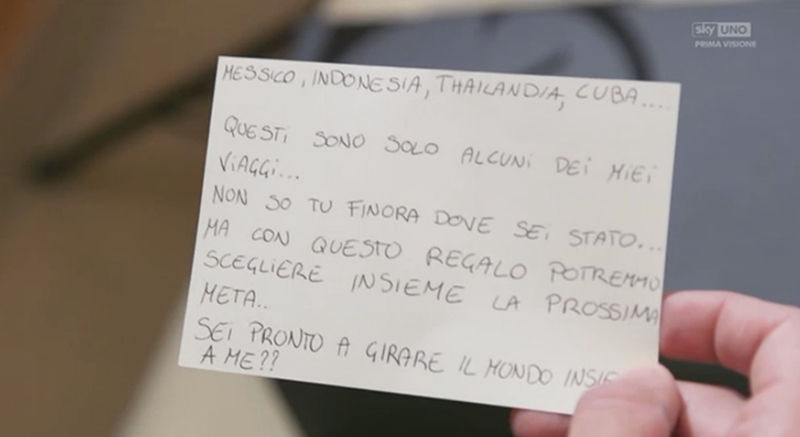 sky UNO
PRIMA VISIONE
MESSICO, INDONESIA, THAILANDIA, CUBA....
QUESTI SONO SOLO ALCUNI DEI MIEI
VIAGGI...
NON SO TU FINORA DOVE SEI STATO...
MA CON QUESTO REGALO POTREMMO
SCEGLIERE INSIEME LA PROSSIMA
META..
SEI PRONTO A GIRARE IL MONDO INSIE
A ME??